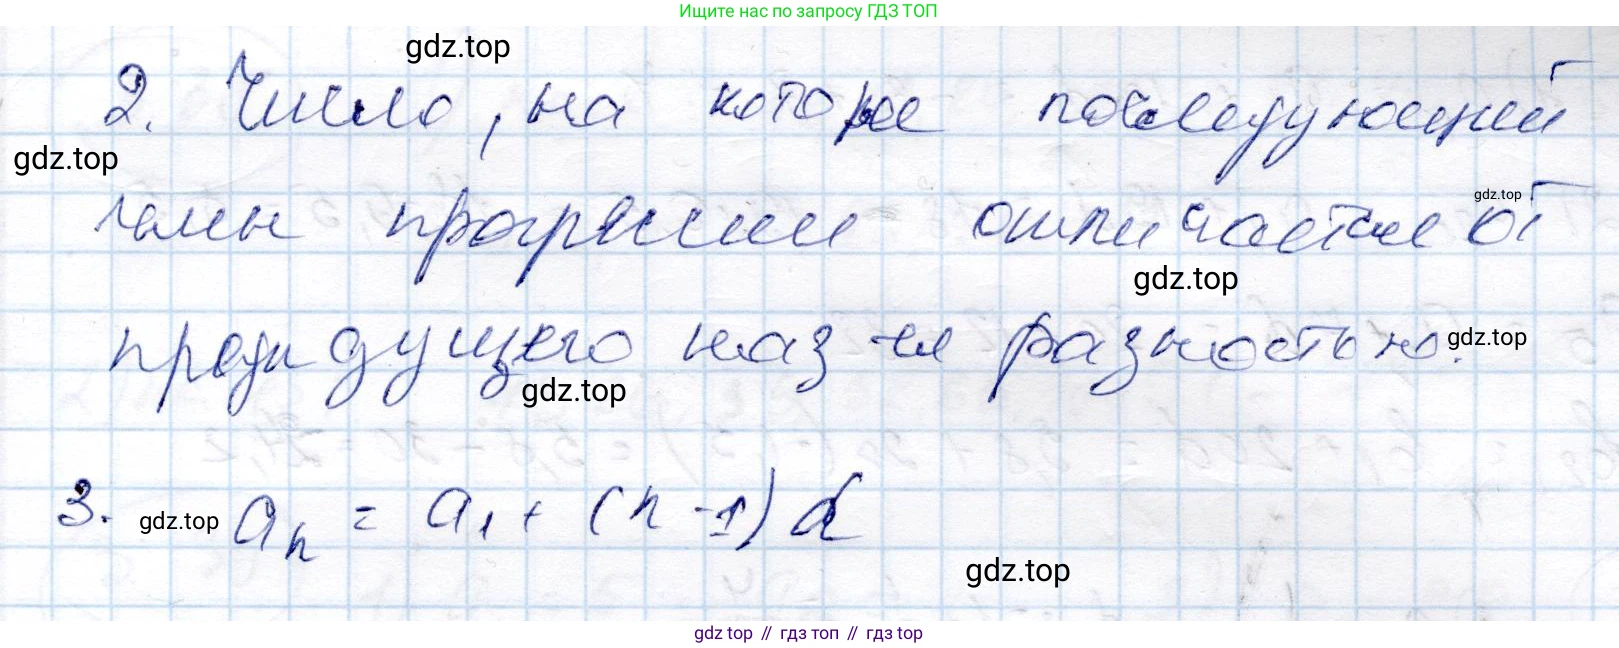 Ищите нас по запросу ГДЗ ТОП
gdz.top
2. Число, на которое последующий
gdz.top
gdz.top
член прогрессии отличается от
gdz.top
предыдущего наз-ся разностью.
gdz.top
gdz.top
3. aₙ = a₁ + (n - 1) d
gdz.top
gdz.top
gdz top // гдз топ // гдз top